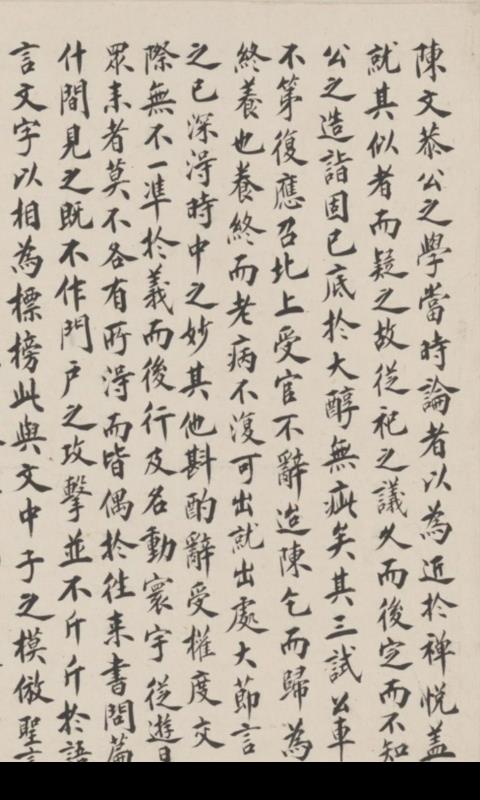 陳文恭公之學當時論者以為近於禅悅盖
就其似者而疑之故從祀之議久而後定而不知
公之造詣固已底於大醇無疵矣其三試公車
不第復應召北上受官不辭迨陳乞而歸為
終養也養終而老病不復可出就出處大節言
之已深淂時中之妙其他斟酌辭受權度交
際無不一準於義而後行及名動寰宇從遊日
眾来者莫不各有所淂而皆偶於往来書問篇
什間見之既不作門戶之攻擊並不斤斤於語
言文字以相為標榜此與文中子之模倣聖言